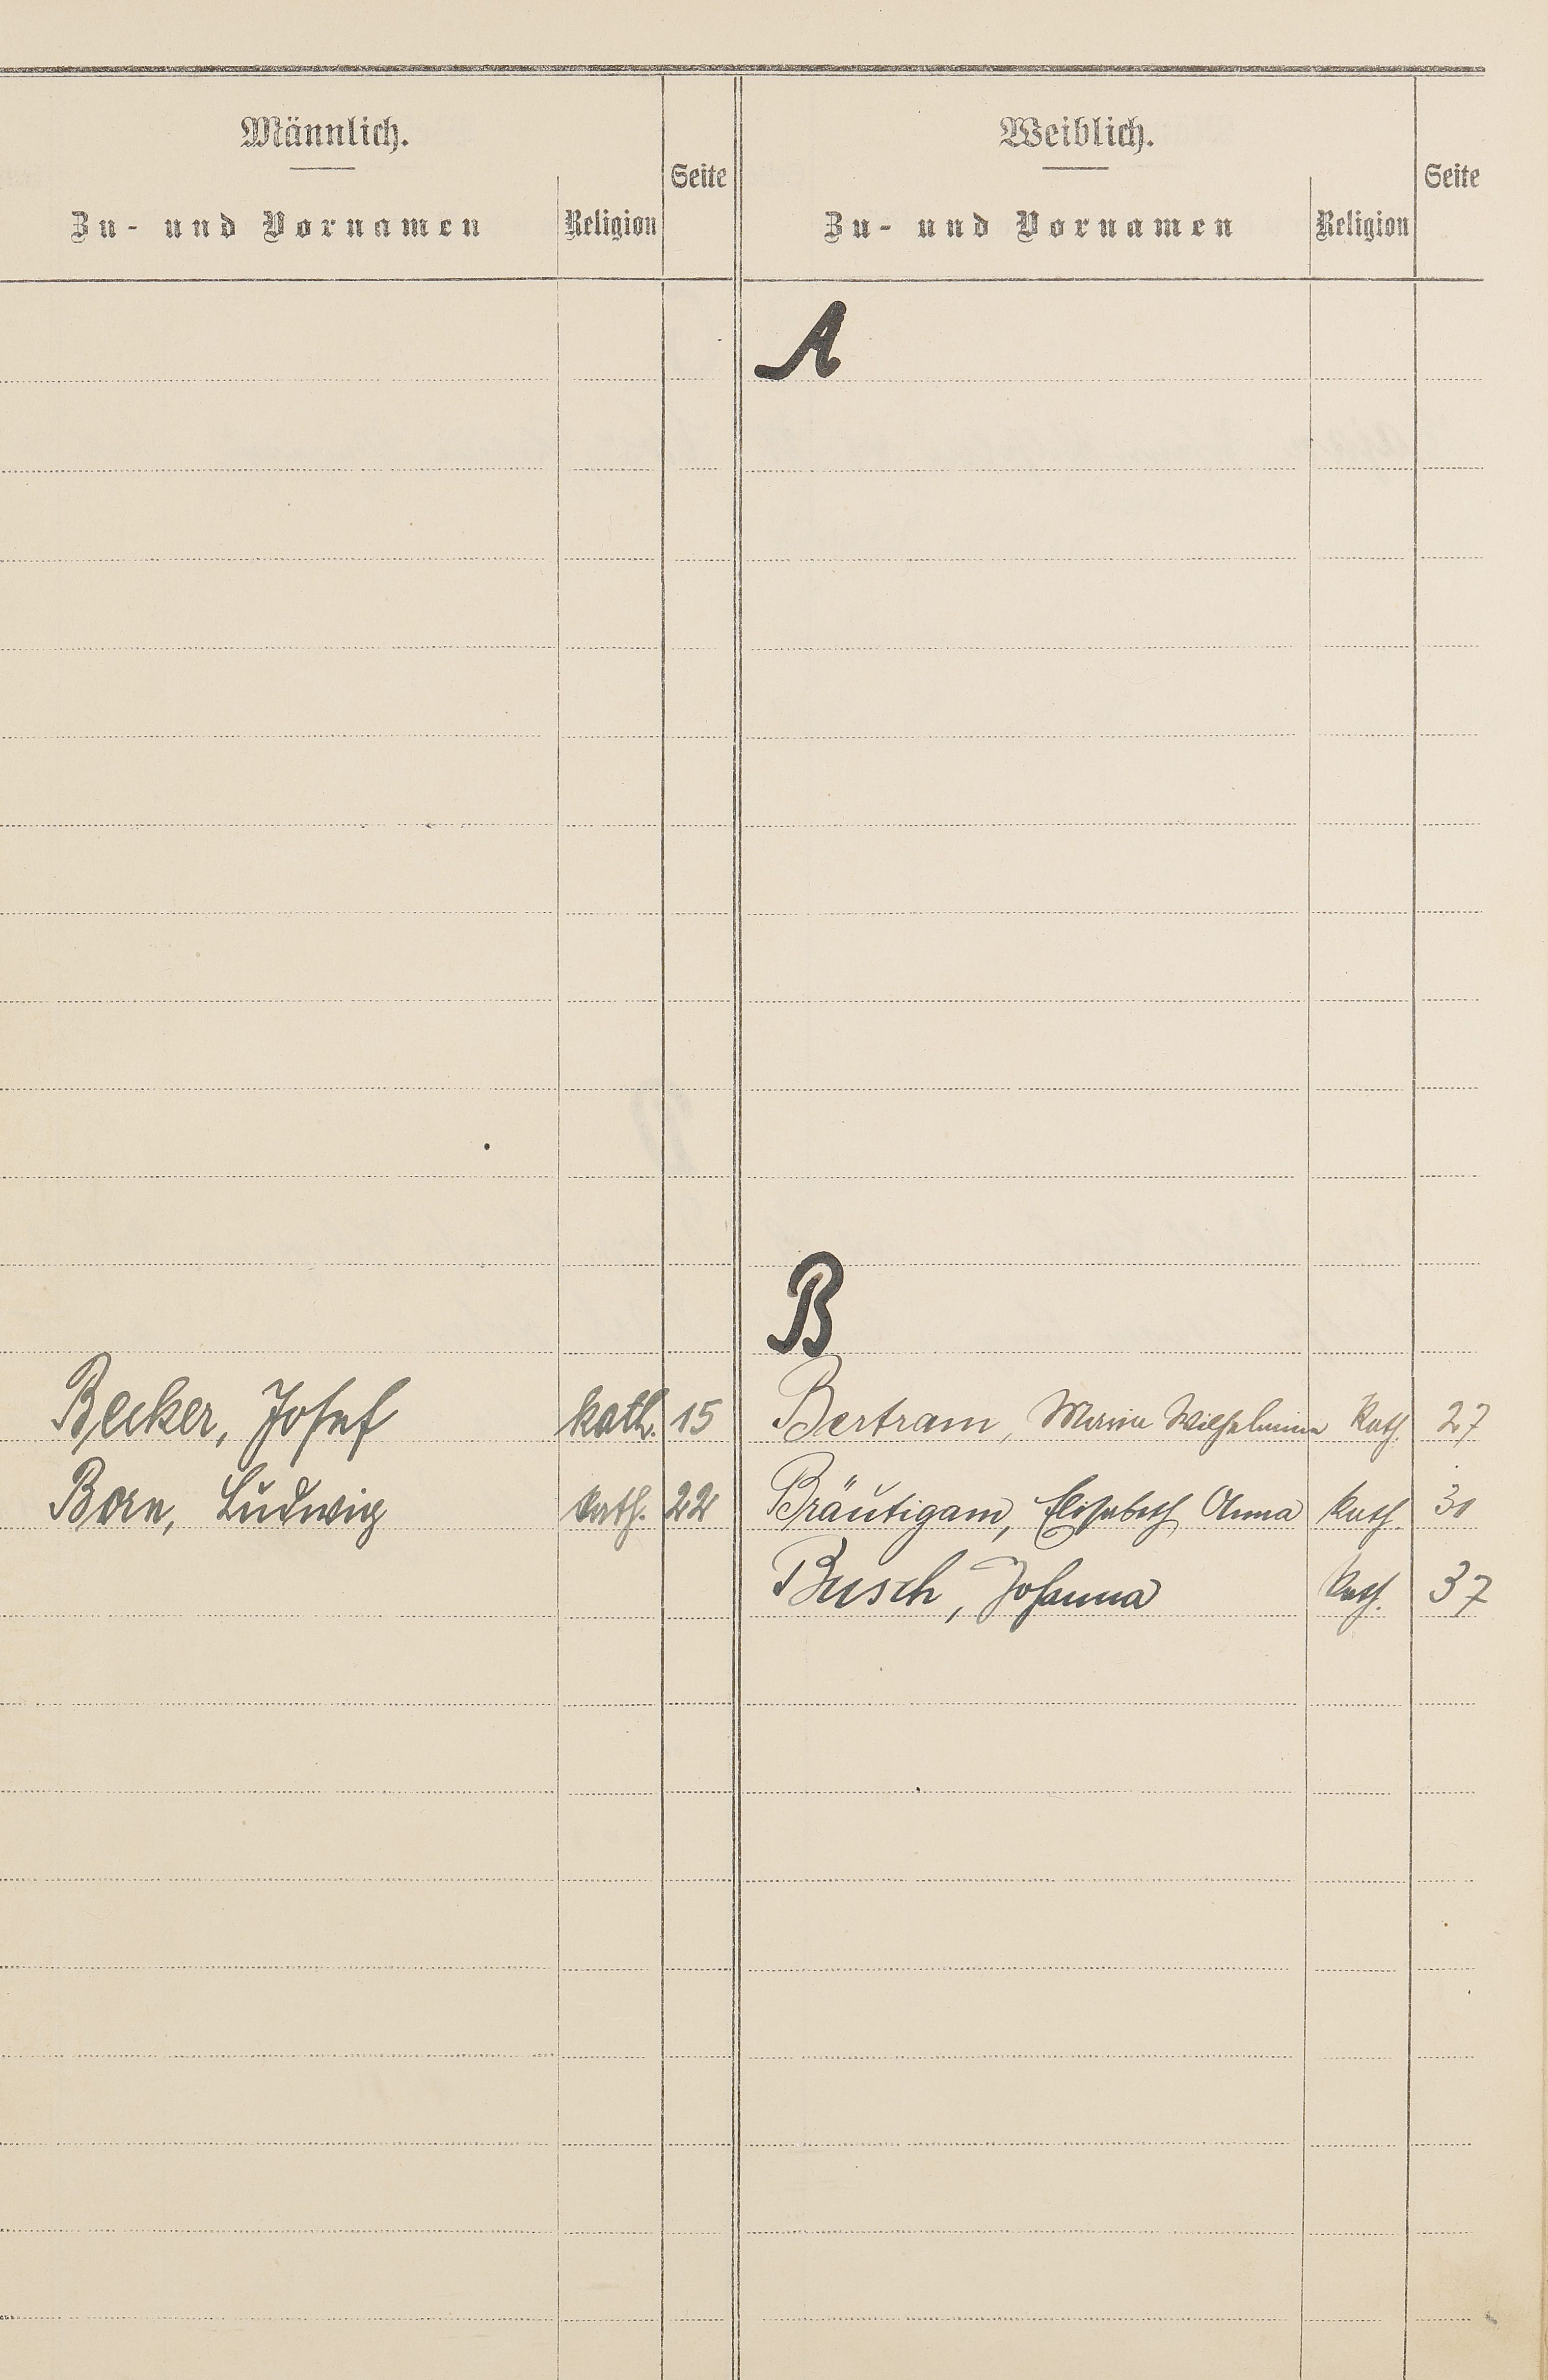 Männlich.
Zu- und Vornamen
Religion
Seite
Weiblich.
Zu- und Vornamen
Religion
Seite
A
B
Becker, Josef kath. 15 Bertram, Maria Wilhelmine kath. 27
Born, Ludwig kath. 22 Bräutigam, Elisabeth Anna kath. 31
Busch, Johanna kath. 37